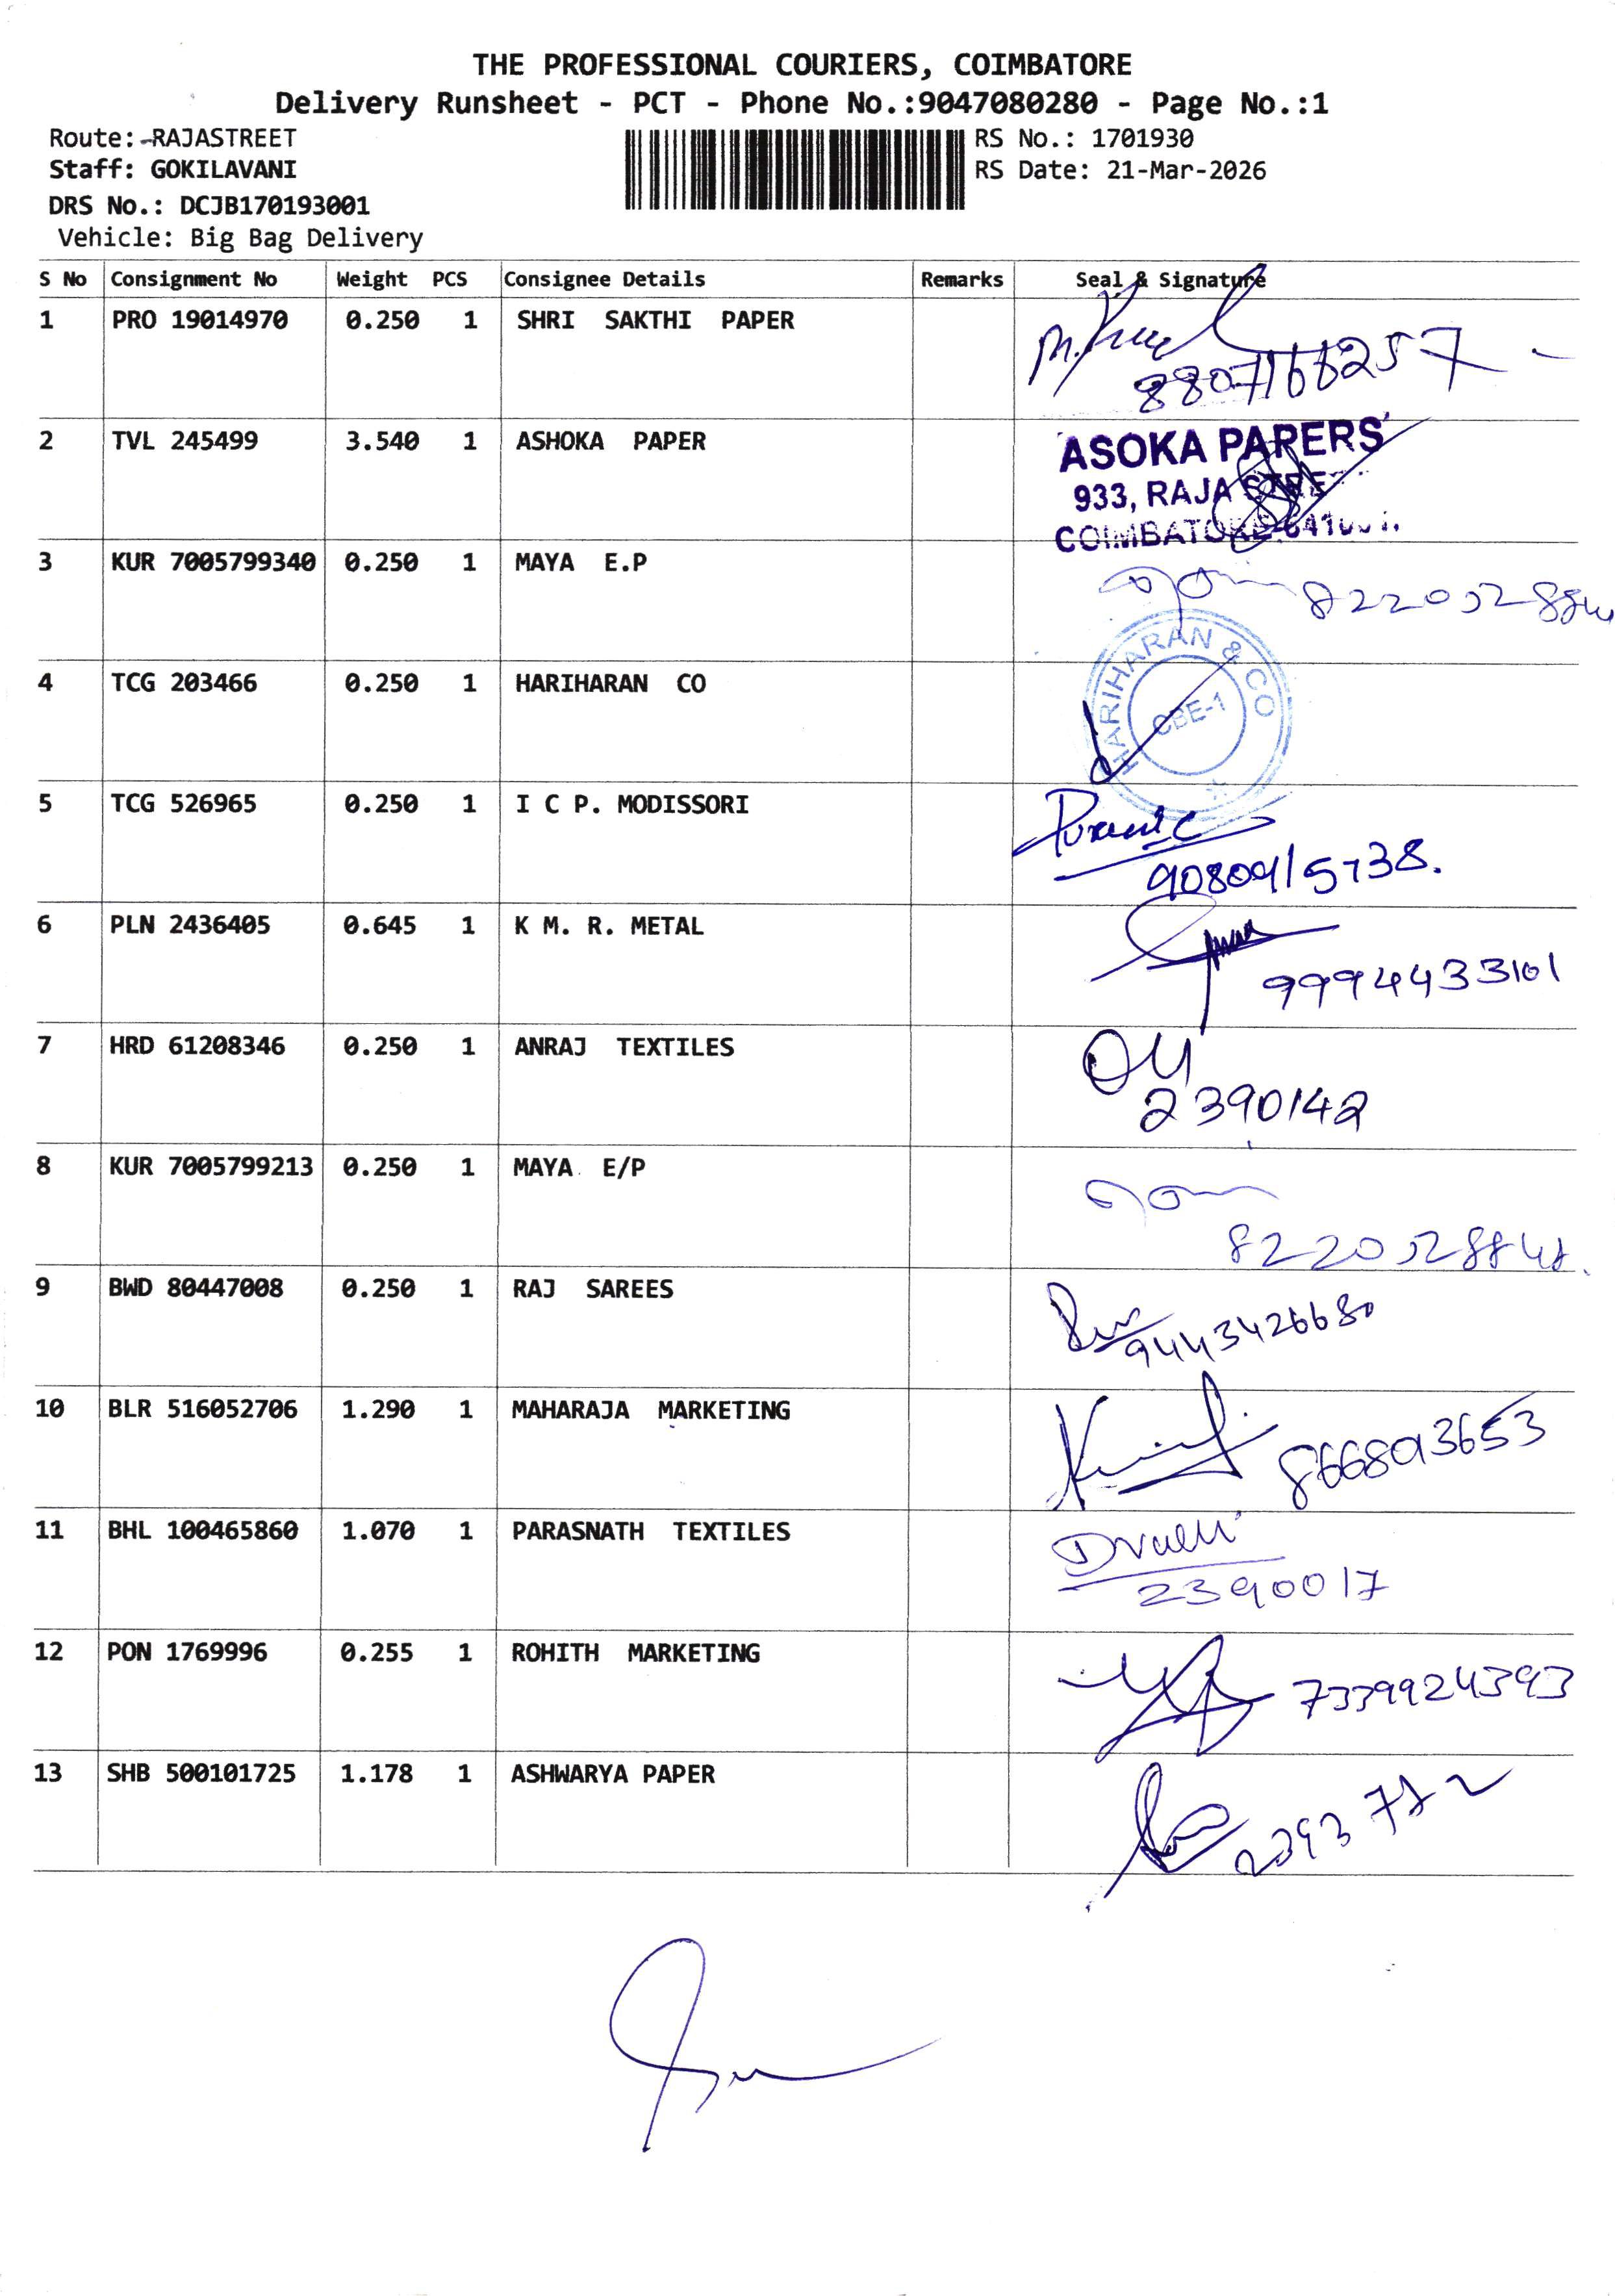 THE PROFESSIONAL COURIERS, COIMBATORE
Delivery Runsheet - PCT - Phone No.:9047080280 - Page No.:1
Route: RAJASTREET
RS No.: 1701930
Staff: GOKILAVANI
RS Date: 21-Mar-2026
DRS No.: DCJB170193001
Vehicle: Big Bag Delivery
S No Consignment No Weight PCS Consignee Details Remarks Seal & Signature
1 PRO 19014970 0.250 1 SHRI SAKTHI PAPER
8807166257
2 TVL 245499 3.540 1 ASHOKA PAPER
ASOKA PAPERS
933, RAJA
3 KUR 7005799340 0.250 1 MAYA E.P
4 TCG 203466 0.250 1 HARIHARAN CO
HARIHARAN & CO
CBE-1
5 TCG 526965 0.250 1 I C P. MODISSORI
9080915738.
6 PLN 2436405 0.645 1 K M. R. METAL
9994433101
7 HRD 61208346 0.250 1 ANRAJ TEXTILES
2390142
8 KUR 7005799213 0.250 1 MAYA E/P
9 BWD 80447008 0.250 1 RAJ SAREES
9443426680
10 BLR 516052706 1.290 1 MAHARAJA MARKETING
8668013653
11 BHL 100465860 1.070 1 PARASNATH TEXTILES
2390017
12 PON 1769996 0.255 1 ROHITH MARKETING
7339924393
13 SHB 500101725 1.178 1 ASHWARYA PAPER